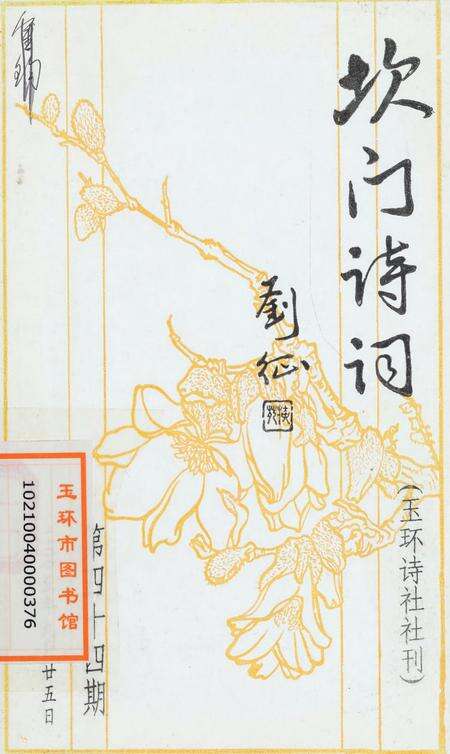 坎门诗词
(玉环诗社社刊)
劉征
第四十四期
廿五日
玉环市图书馆
10210040000376